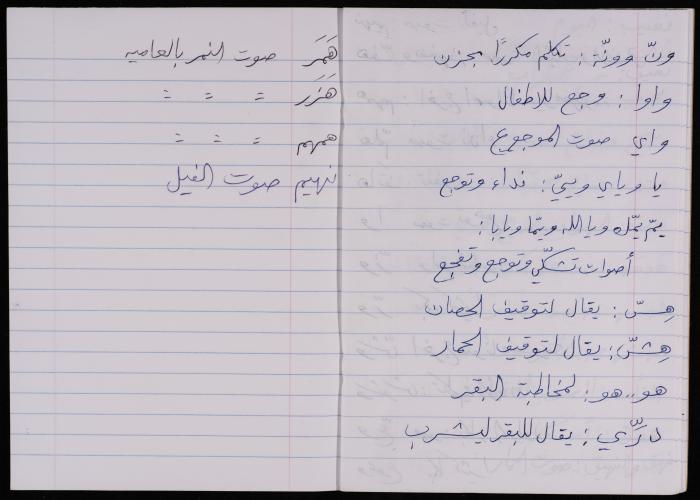 ونّ وونّة: تكلم مكررًا بحزن
واوا: وجع للاطفال
واي صوت الموجوع
يا وياي وييّ: نداء وتوجع
يمّ يمّك ويا الله ويمّا ويابا:
أصوات تشكّي وتوجع وتفجع
هِسّ: يقال لتوقيف الحصان
هِشّ: يقال لتوقيف الحمار
هو..هو: لمخاطبة البقر
درِّي: يقال للبقر ليشرب
هَمَر صوت النمر بالعاميه
هَزَر = = =
همهم = = =
نهيم صوت الفيل